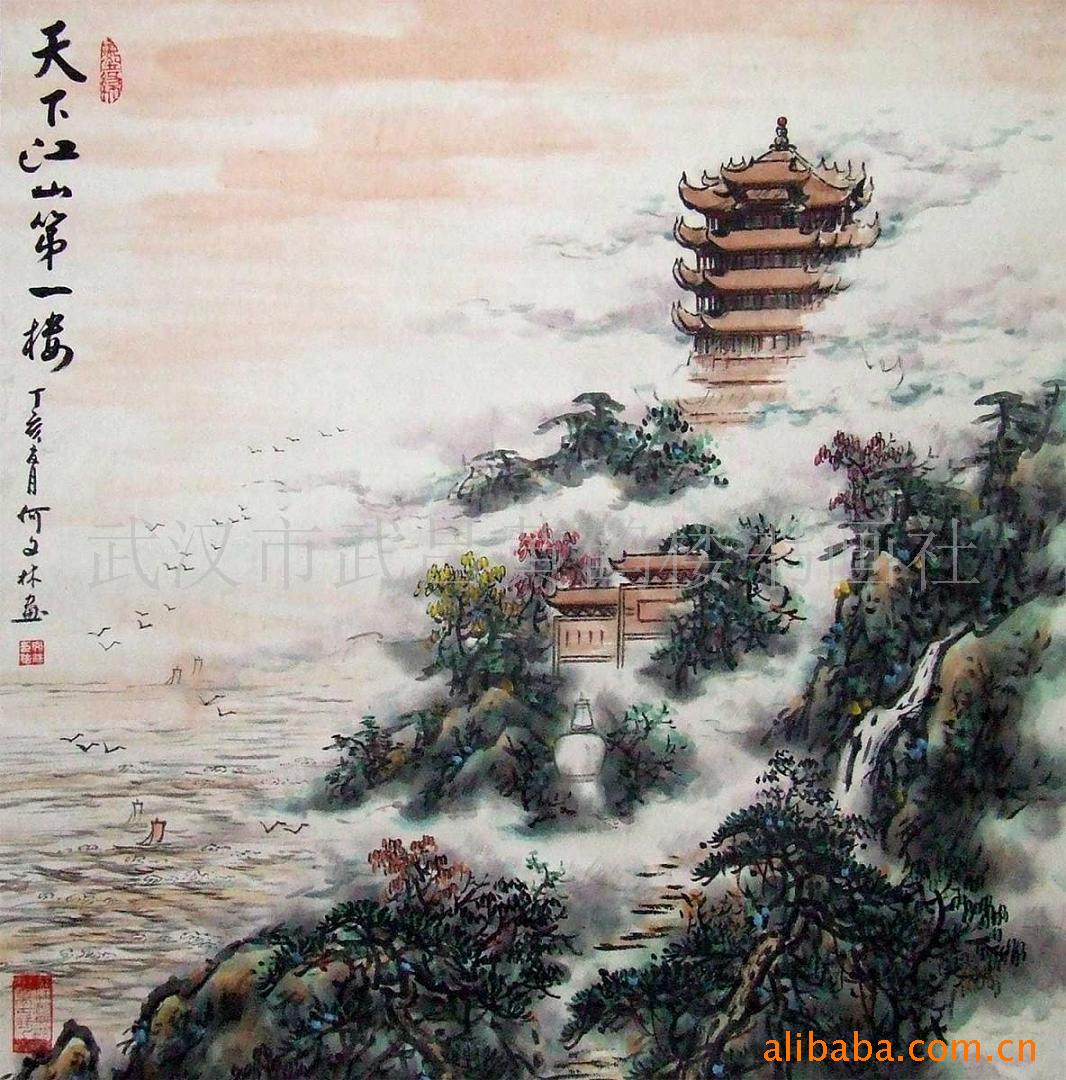 天下江山第一楼
丁亥五月何文林画
武汉市武昌黄鹤楼书画社
alibaba.com.cn